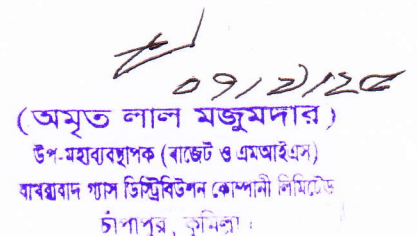 ০৭/১/১২
(অমৃত লাল মজুমদার)
উপ-মহাব্যবস্থাপক (বাজেট ও এমআইএস)
বাখরাবাদ গ্যাস ডিস্ট্রিবিউশন কোম্পানী লিমিটেড
চাঁপাপুর, কুমিল্লা।